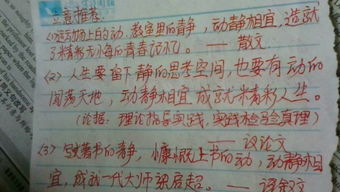 立意推荐:
(1) 运动场上的动,教室里的静,动静相宜,造就
了精彩无悔的青春记忆。—— 散文
(2) 人生要留下静的思考空间,也要有动的
阔荡天地,动静相宜成就精彩人生。
(论据:理论指导实践,实践检验真理)
—— 议论文
(3) 著书的静,慷慨上书的动,动静相
宜,成就一代大师梁启超。—— 记叙文